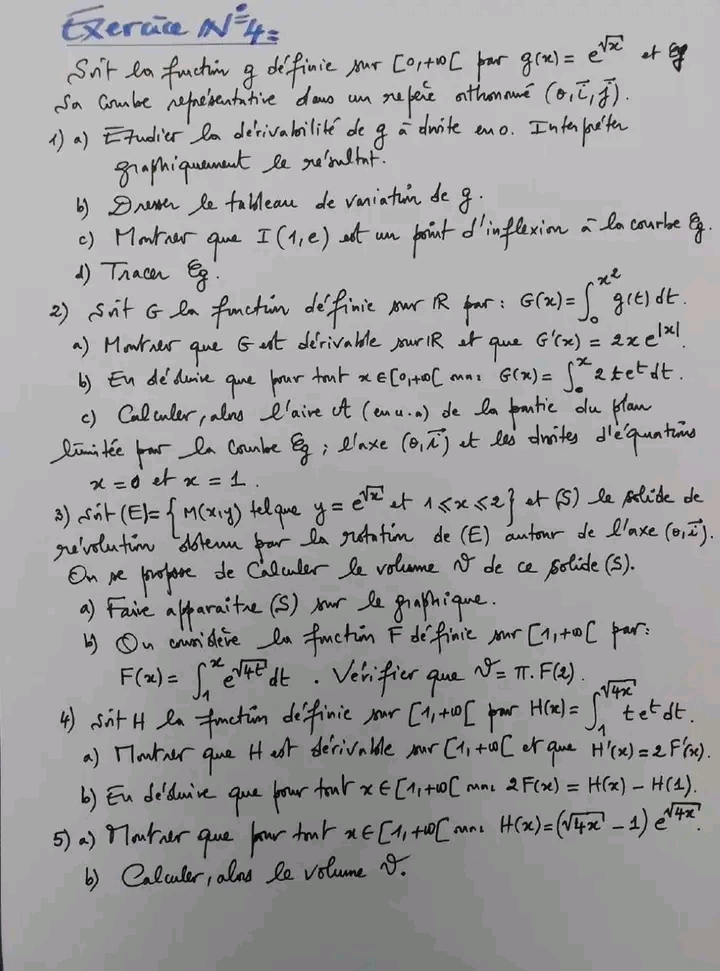 Exercice N°4:
Soit la fonction g définie sur [0,+∞[ par g(x) = e^{√x} et 𝒞g
sa courbe représentative dans un repère orthonormé (o,i⃗,j⃗).
1) a) Etudier la dérivabilité de g à droite en 0. Interpréter
graphiquement le résultat.
b) Dresser le tableau de variation de g.
c) Montrer que I(1,e) est un point d'inflexion à la courbe 𝒞g.
d) Tracer 𝒞g.
2) Soit G la fonction définie sur ℝ par : G(x) = ∫₀^{x²} g(t) dt.
a) Montrer que G est dérivable sur ℝ et que G'(x) = 2x e^{|x|}.
b) En déduire que pour tout x ∈ [0,+∞[ on a : G(x) = ∫₀^x 2t e^t dt.
c) Calculer, alors l'aire A (en u.a) de la partie du plan
limitée par la courbe 𝒞g ; l'axe (o,i⃗) et les droites d'équations
x = 0 et x = 1.
3) Soit (E) = { M(x,y) tel que y = e^{√x} et 1 ≤ x ≤ 2 } et (S) le solide de
révolution obtenu par la rotation de (E) autour de l'axe (o,i⃗).
On se propose de Calculer le volume 𝒱 de ce solide (S).
a) Faire apparaitre (S) sur le graphique.
b) On considère la fonction F définie sur [1,+∞[ par :
F(x) = ∫₁^x e^{√4t} dt . Vérifier que 𝒱 = π. F(2).
4) Soit H la fonction définie sur [1,+∞[ par H(x) = ∫₁^{√4x} t e^t dt.
a) Montrer que H est dérivable sur [1,+∞[ et que H'(x) = 2F'(x).
b) En déduire que pour tout x ∈ [1,+∞[ on a : 2F(x) = H(x) - H(1).
5) a) Montrer que pour tout x ∈ [1,+∞[ on a : H(x) = (√4x - 1) e^{√4x}.
b) Calculer, alors le volume 𝒱.